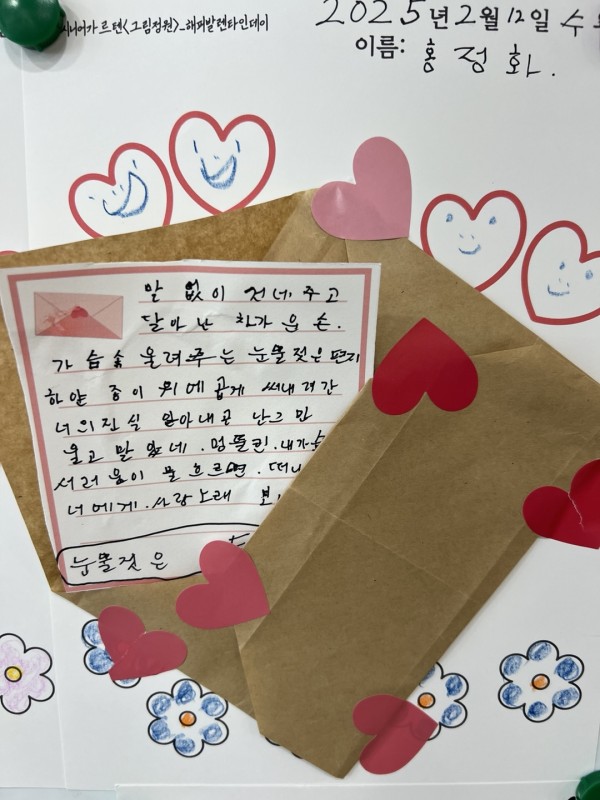 시니어가르텐<그림정원>_해피발렌타인데이
2025년 2월 12일 수
이름: 홍정화.
말 없이 건네 주고
달아 난 차가 운 손.
가 슴 속 울려 주 는 눈물젖은 편지
하얀 종이 위에 곱게 써내 려간
너의 진실 알아내곤 난 그만
울고 말 았네. 멍뚤린 내가슴
서러움이 물 흐르면. 떠나
너에게. 사랑 노래 보
눈물젖은